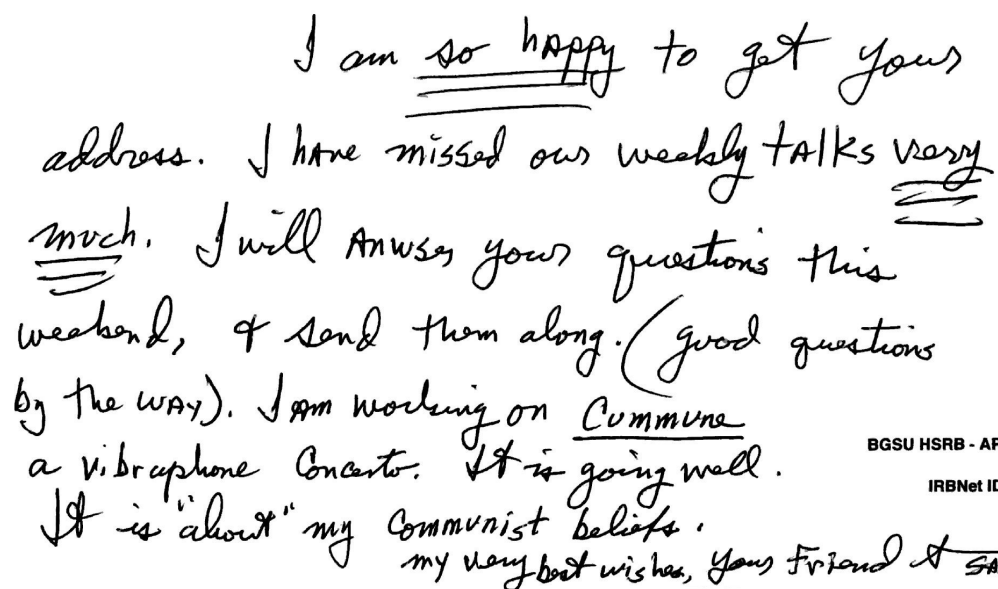 I am so happy to get your
address. I have missed our weekly talks very
much. I will Anwser your questions this
weekend, & send them along. (good questions
by the way). I am working on Commune
a vibraphone Concerto. It is going well.
BGSU HSRB - AP
IRBNet ID
It is "about" my Communist beliefs.
my very best wishes, your Friend